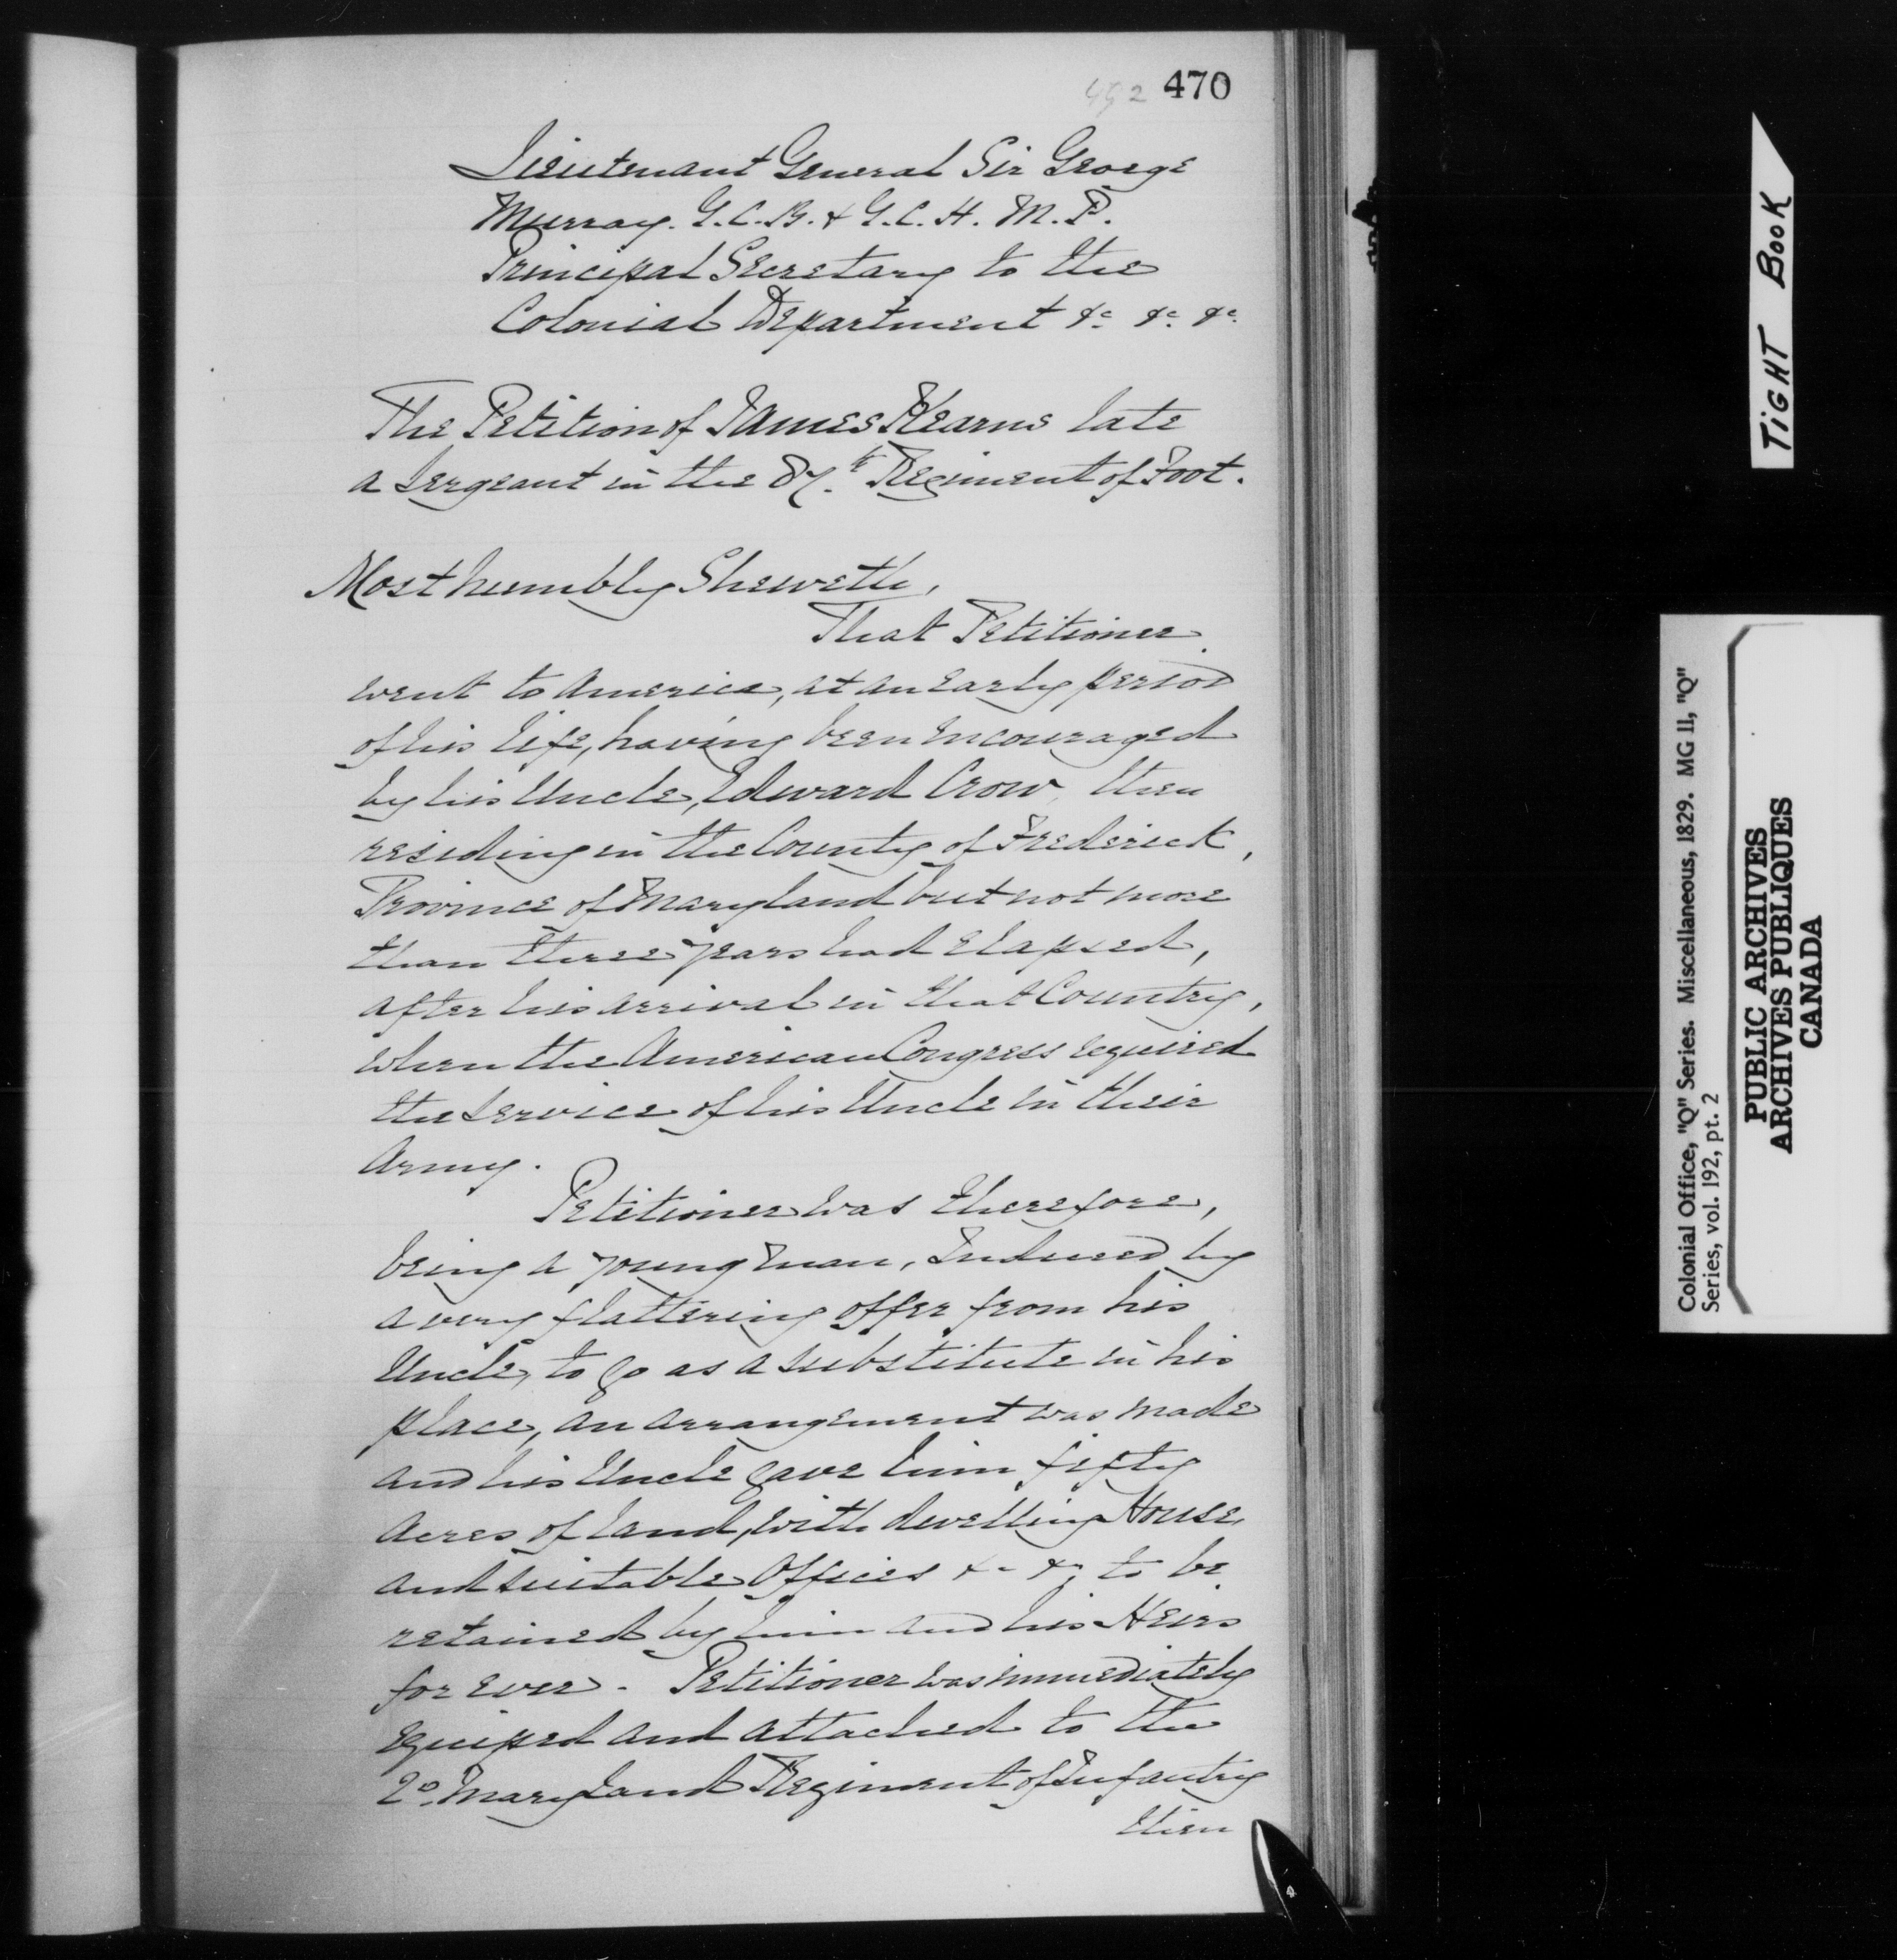 470
Lieutenant General Sir George
Murray. G.C.B. & G.C.H. M.P.
Principal Secretary to the
Colonial Department &c. &c. &c.
The Petition of James Kearns late
a Sergeant in the 87.th Regiment of Foot.
Most humbly Sheweth,
That Petitioner
went to America, at an early period
of his life, having been encouraged
by his Uncle, Edward Crow, then
residing in the County of Frederick,
Province of Maryland but not more
than three years had elapsed,
after his arrival in that Country,
when the American Congress required
the service of his Uncle in their
Army.
Petitioner was therefore,
being a young man, Induced by
a very flattering offer from his
Uncle, to go as a substitute in his
place, an arrangement was made
and his Uncle gave him fifty
Acres of land, with dwelling House,
and suitable Offices &c &c to be
retained by him and his Heirs
for ever. Petitioner was immediately
equiped and attached to the
2o. Maryland Regiment of Infantry
then
TIGHT BOOK
Colonial Office, "Q" Series. Miscellaneous, 1829. MG 11, "Q"
Series, vol. 192, pt. 2
PUBLIC ARCHIVES
ARCHIVES PUBLIQUES
CANADA